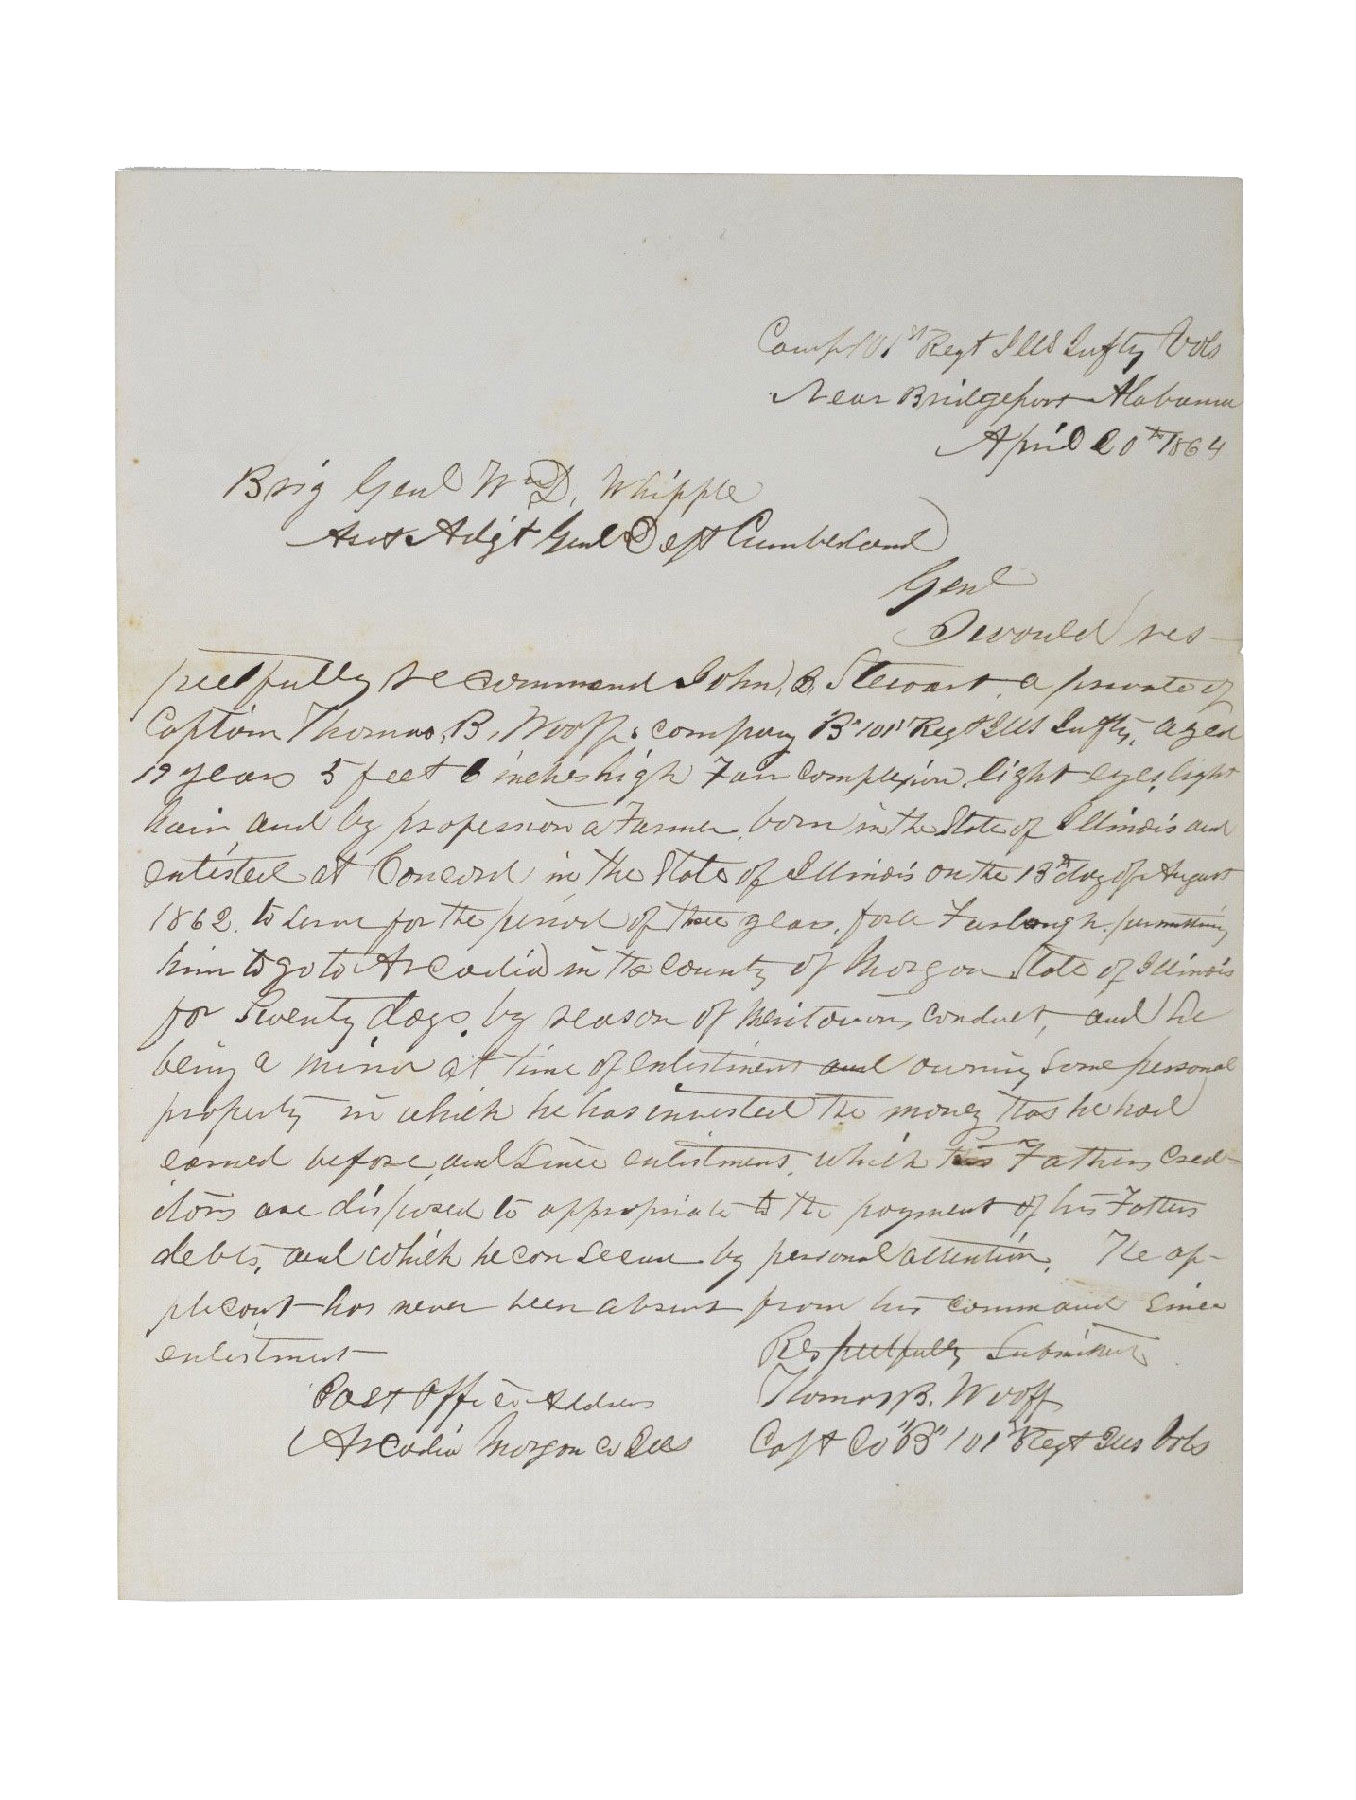 Camp 101st Regt Ills Infty Vols
Near Bridgeport Alabama
April 20th 1864
Brig Genl Wm D. Whipple
Asst Adjt Genl Dept Cumberland
Genl
I would res-
pectfully recommend John B. Stewart, a private of
Captain Thomas B. Wooff, company "B" 101st Regt Ills Infty, aged
19 years 5 feet 6 inches high Fair complexion, light eyes, light
hair and by profession a Farmer, born in the State of Illinois and
enlisted at Concord in the State of Illinois on the 13th day of August
1862. to serve for the period of three years, for a Furlough permitting
him to go to Arcadia in the county of Morgan State of Illinois
for Twenty days, by reason of meritorious conduct, and he
being a minor at time of enlistment and owning some personal
property in which he has invested the money that he had
earned before and since enlistment, which his Fathers cred-
itors are disposed to appropriate to the payment of his Fathers
debts, and which he can secure by personal attention. The ap-
plicant has never been absent from his command since
enlistment
Respectfully Submitted
Post Office Address
Thomas B. Wooff
Arcadia Morgan Co Ills
Capt Co "B" 101st Regt Ills Vols